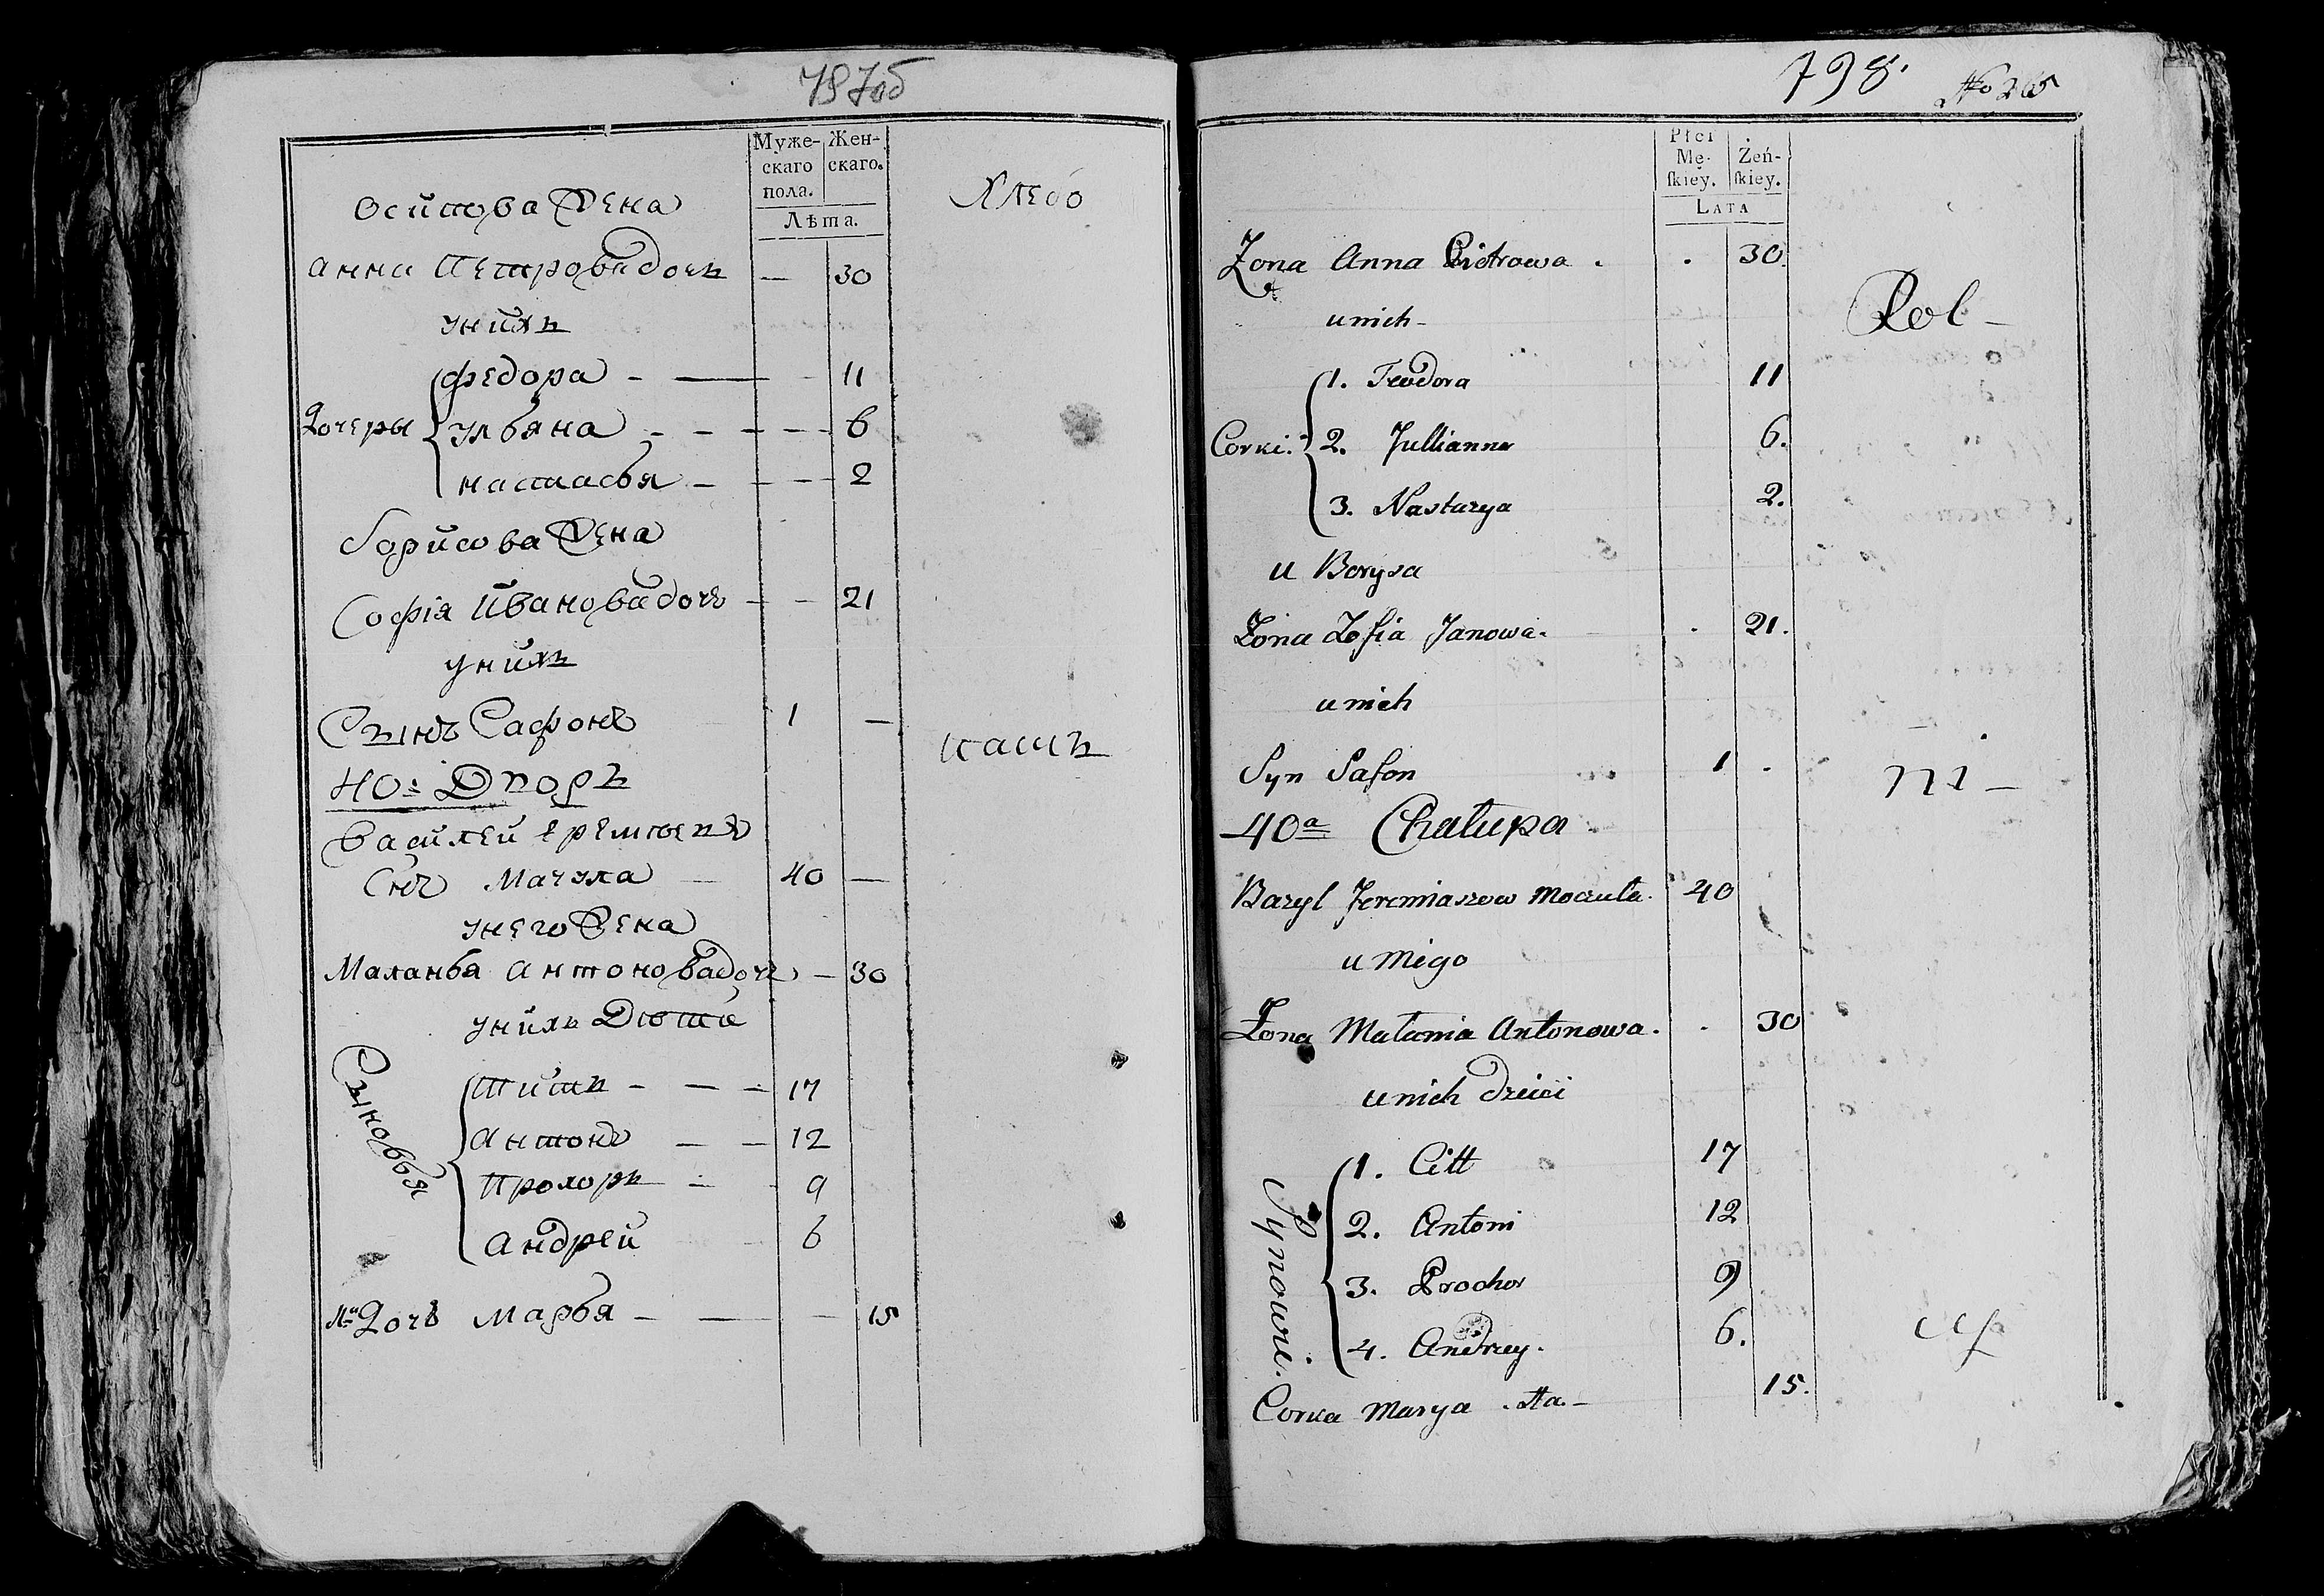 797об
Муже-
скаго
пола.
Жен-
скаго.
Лѣта.
Осипова Жена
Хлебо
Анна Петровадочь — 30
унихъ
Дочеры
Федора — 11
Ульяна — 6
Настасья — 2
Борисова Жена
Софія Ивановадочь — 21
унихъ
Сынъ Сафонъ 1 —
пашъ
40: Дворъ
Василей Еремѣевъ
Снъ Мачула 40 —
унего Жена
Маланья Антоновадочь — 30
унихъ Дѣти
Сыновья
Титъ — 17
Антонъ — 12
Прохоръ — 9
Андрей 6
Дочь Марья — 15
798. No 265
Płci
Mę-
ſkiey.
Żeń-
ſkiey.
LATA
Zona Anna Piotrowa . . 30.
unich
Rol-
Corki.
1. Teodora 11
2. Jullianna 6.
3. Nastazya 2.
u Borysa
Zona Zofia Janowa. . 21.
unich
Syn Safon 1 .
ni-
40a Chalupa
Bazyl Jeremiaszow Moczula. 40
u niego
Zona Malania Antonowa. . 30
unich dzieci
Synowie.
1. Citt 17
2. Antoni 12
3. Prochor 9
4. Andrzey. 6.
Corka Marya 15.
cy